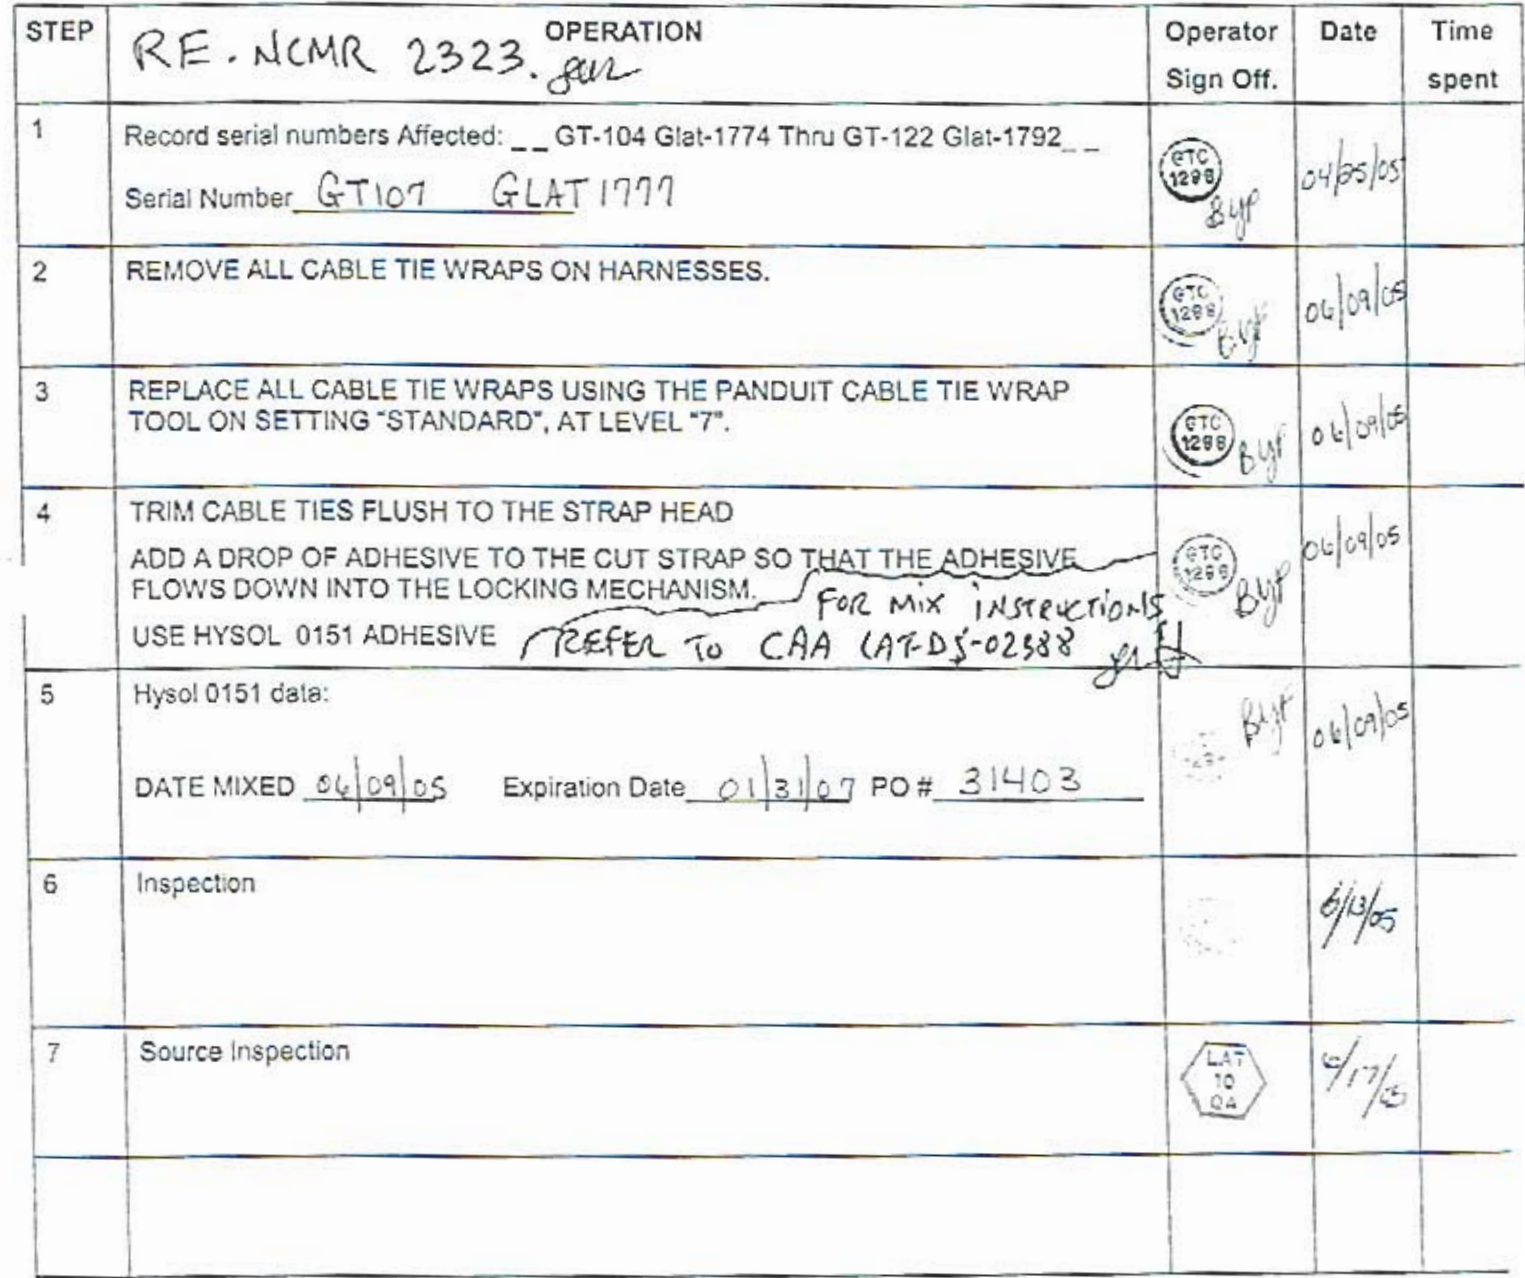 STEP
OPERATION
Operator Sign Off.
Date
Time spent
RE. NCMR 2323.
1
Record serial numbers Affected: _ _ GT-104 Glat-1774 Thru GT-122 Glat-1792_ _
Serial Number GT107 GLAT 1777
GTC
1298
Byp
04/25/05
2
REMOVE ALL CABLE TIE WRAPS ON HARNESSES.
GTC
1298
Byp
06/09/05
3
REPLACE ALL CABLE TIE WRAPS USING THE PANDUIT CABLE TIE WRAP
TOOL ON SETTING "STANDARD", AT LEVEL "7".
GTC
1298
Byp
06/09/05
4
TRIM CABLE TIES FLUSH TO THE STRAP HEAD
ADD A DROP OF ADHESIVE TO THE CUT STRAP SO THAT THE ADHESIVE
FLOWS DOWN INTO THE LOCKING MECHANISM.
FOR MIX INSTRUCTIONS
USE HYSOL 0151 ADHESIVE REFER TO CAA LAT-DS-02388
GTC
1298
Byp
06/09/05
5
Hysol 0151 data:
Byp
06/09/05
DATE MIXED 06/09/05 Expiration Date 01/31/07 PO # 31403
6
Inspection
6/13/05
7
Source Inspection
LAT
10
QA
6/17/05